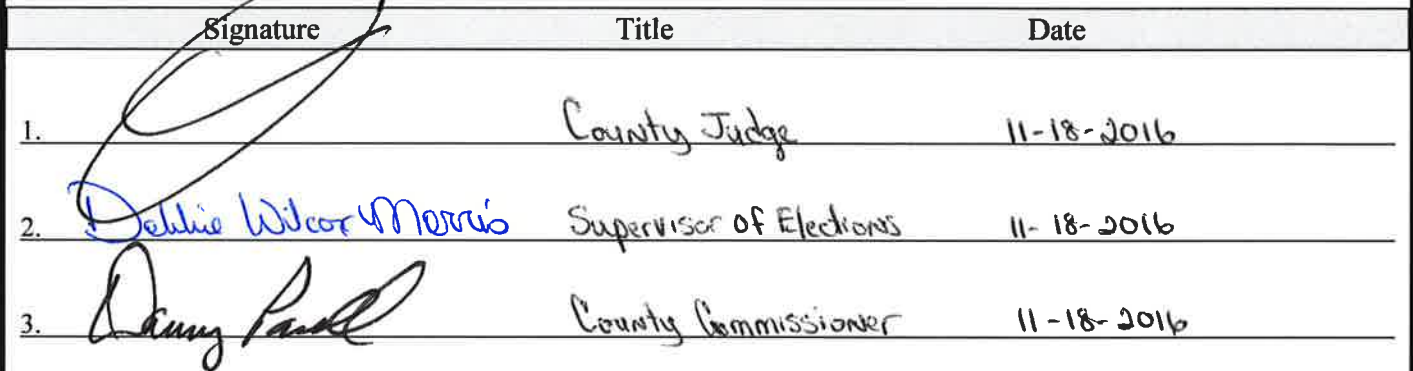 Signature Title Date
1. County Judge 11-18-2016
2. Debbie Wilcox Morris Supervisor of Elections 11-18-2016
3. Danny County Commissioner 11-18-2016